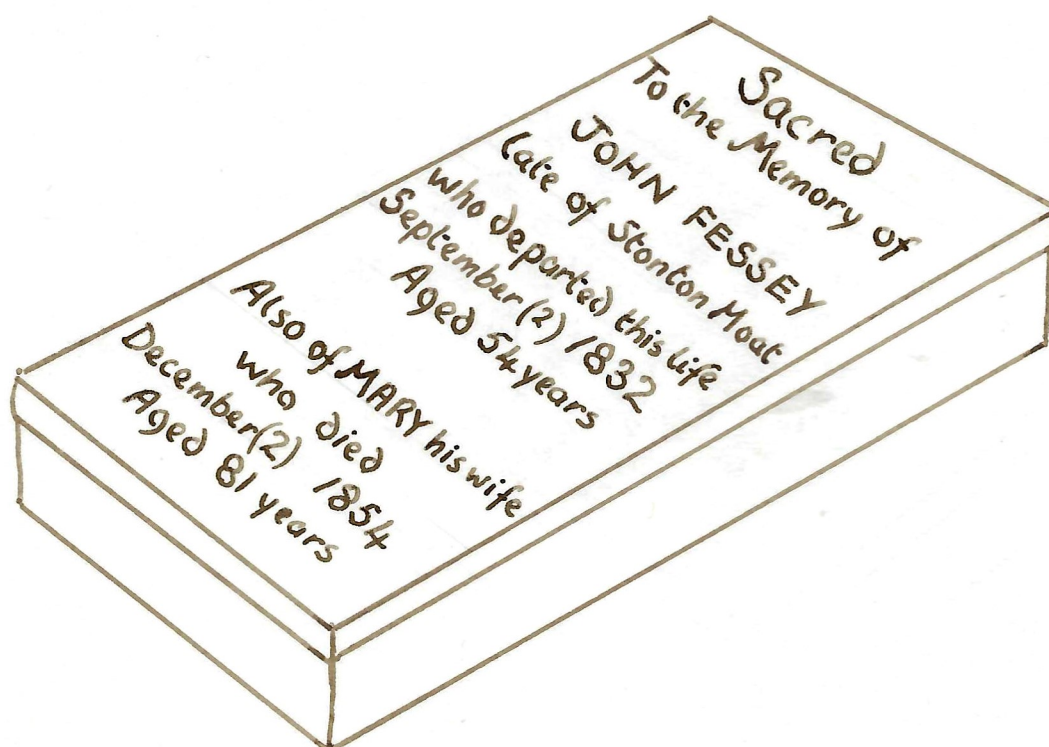 Sacred
To the Memory of
JOHN FESSEY
late of Stonton Moat
who departed this life
September (2) 1832
Aged 54 years
Also of MARY his wife
who died
December (2) 1854
Aged 81 years